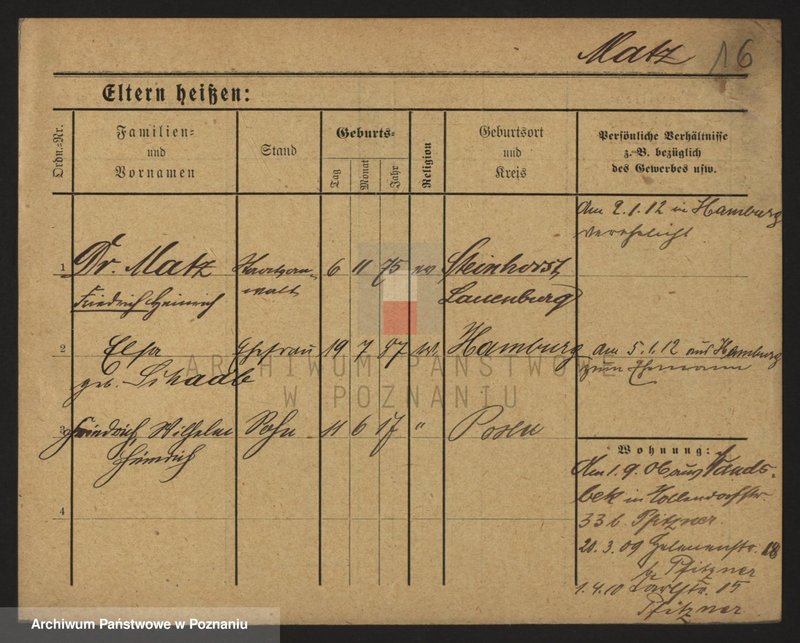 Matz 16
Eltern heißen:
Ordn.-Nr.
Familien-
und
Vornamen
Stand
Geburts-
Tag
Monat
Jahr
Religion
Geburtsort
und
Kreis
Persönliche Verhältnisse
z. B. bezüglich
des Gewerbes usw.
Am 2.1.12 in Hamburg
verehelicht
1 Dr. Matz Staatsan- 6 11 75 ev Steinhorst
Friedrich Heinrich walt Lauenburg
2 Elsa Ehefrau 19 7 87 Hamburg
geb. Schaab
am 5.1.12 aus Hamburg
zum Ehemann
3 Friedrich Wilhelm Sohn 11 6 17 " Posen
Heinrich
4
Wohnung:
Am 1.9.06 aus Wands-
bek in Hollendorfstr
33 b. Pfitzner
20.3.09 18
Pfitzner
1.4.10 15
Pfitzner
ARCHIWUM PAŃSTWOWE
W POZNANIU
Archiwum Państwowe w Poznaniu